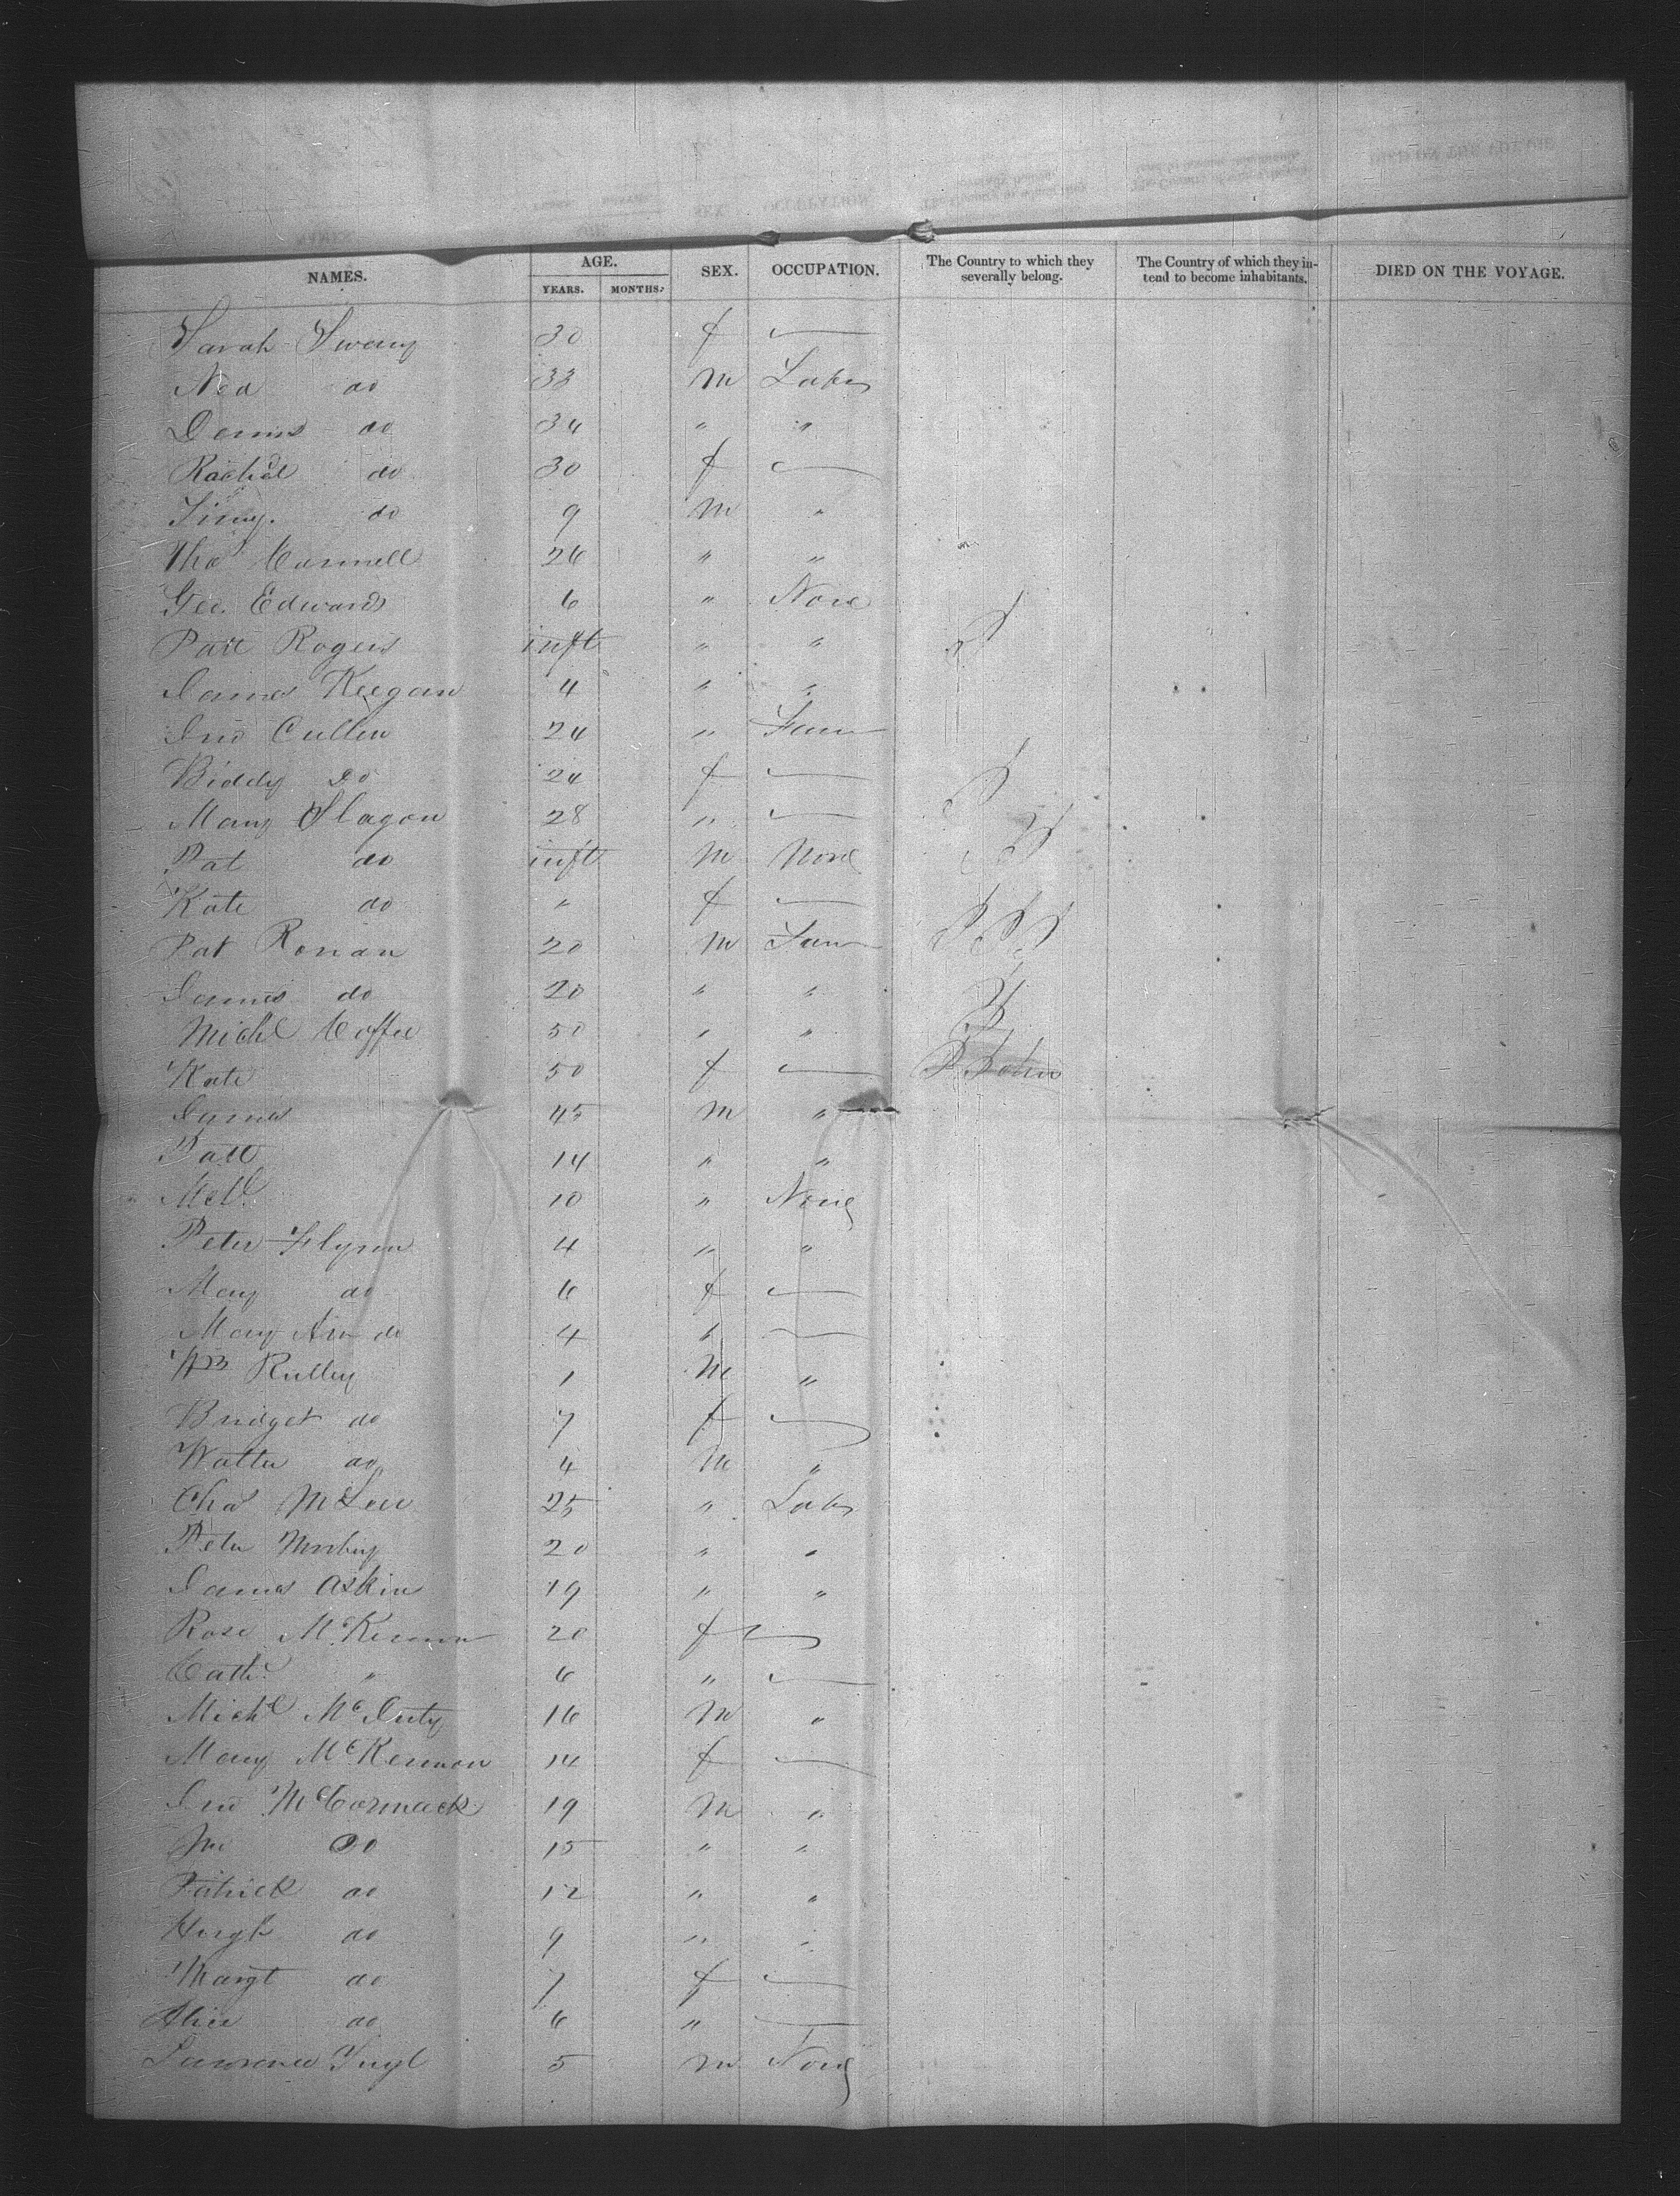 NAMES. AGE. YEARS. MONTHS. SEX. OCCUPATION. The Country to which they severally belong. The Country of which they intend to become inhabitants. DIED ON THE VOYAGE.
Sarah Sweny 30 f
Ned do 33 m Labr
Dennis do 34 " "
Rachel do 30 f
do 9 m "
Thos Connell 26 " "
Geo. Edwards 6 " None
Patt Rogers inft " "
James Keegan 4 " "
Jno Cullen 24 " Farm
Biddy Do 24 f
Mary Slagon 28 "
Pat do inft m None
Kate do " f
Pat Ronan 20 m Farm
James do 20 " "
Michl Coffee 50 " "
Kate 50 f
James 45 m "
Patt 14 " "
Mcl 10 " None
Peter Flynn 4 " "
Mary do 6 f
Mary Ann do 4 "
Wm Rulley 1 m "
Bridget do 7 f
Walter do 4 m "
Chas McLee 25 " Labr
Peter 20 " "
James Askin 19 " "
Rose McKernon 20 f
Cath " 6 "
Michl McDuty 16 m "
Mary McKernon 14 f
Jno McCormack 19 m "
Do 15 " "
Patrick do 12 " "
Hugh do 9 " "
Margt do 7 f
Alice do 6 "
Lawrence 5 m None